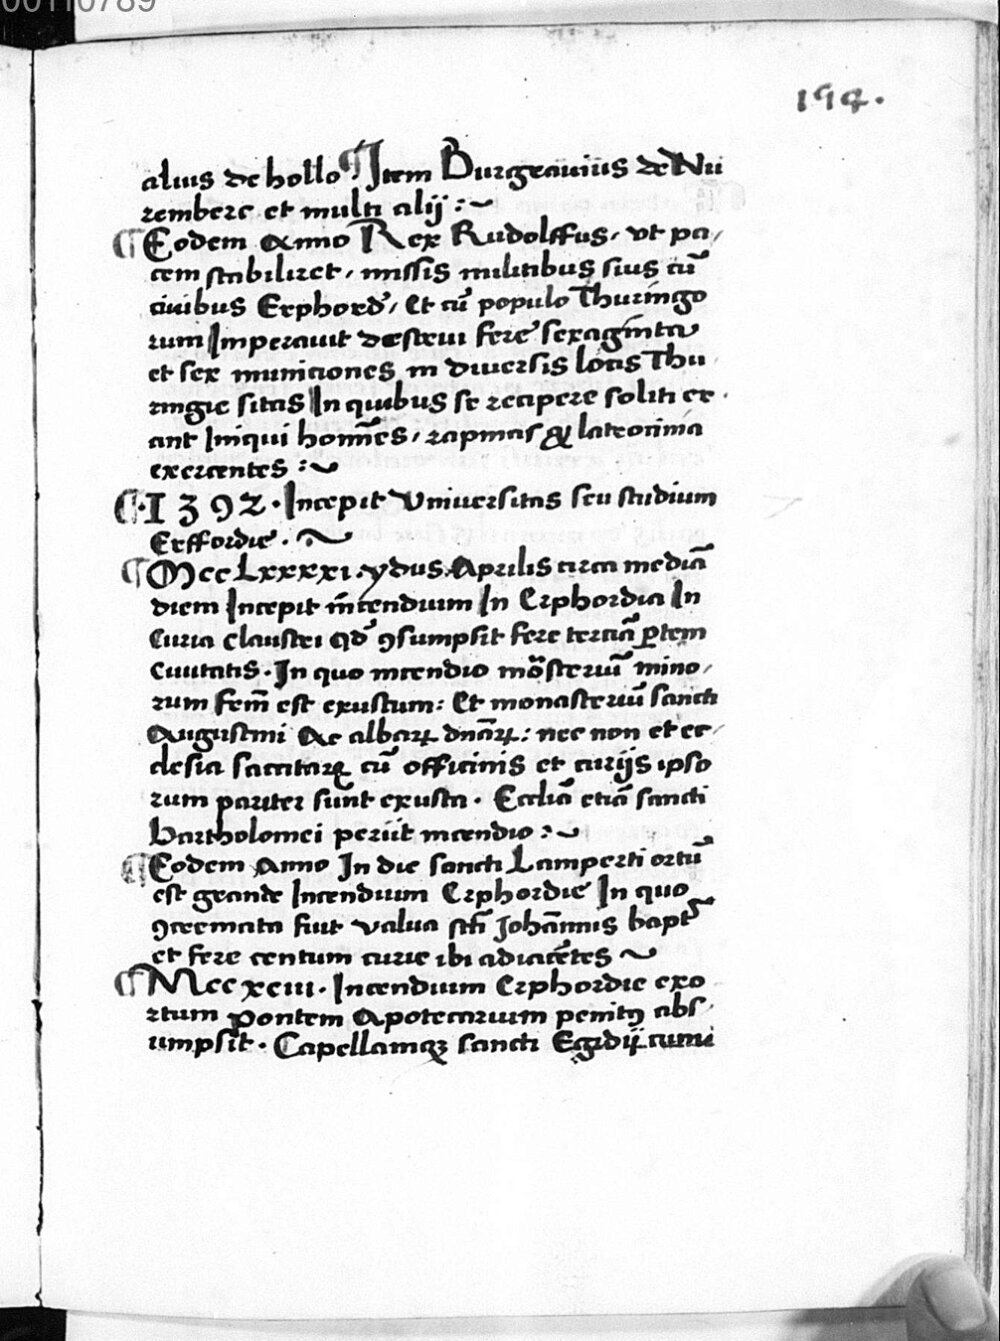 00110789
194.
alius de hollo ¶ Item Burgeauiüs de Nü
rembere et multi alij :~
¶ Eodem Anno Rex Rudolffus, vt pa,
cem stabiliret, missis militibus suis cū
ciuibus Erphord', Et cū populo Thuringo
rum Imperauit destrui fere sexaginta
et sex municiones in diuersis locis Thu
ringie sitas In quibus se recipere soliti er
ant Iniqui homīes, rapinas & latrocinia
exercentes :~
¶ · 1392 · Incepit Vniuersitas seu studium
Erffordie . ~
¶ MccLxxxxi. ydus Aprilis circa mediā
diem Incepit īncendium In Erphordia In
Curia claustri qd' ꝯsumpsit fere terciā ꝑtem
Ciuitatis. In quo incendio mōsteriū mino,
rum fem̄ est exustum: Et monasteriū sancti
Augustini Ac albaꝝ dnāꝝ: nec non et ec,
clesia sacctarꝝ cū officinis et curijs ipso
rum pariter sunt exusta. Eccliā etiā sancti
Bartholomei periit incendio :~
¶ Eodem Anno In die sancti Lamperti ortū
est grande Incendium Erphordie In quo
ꝯcremata fuit valua sctī Johānnis bapt
et fere centum curie ibi adiacētes ~
¶ Mccxciii. Incendium Erphordie exo
rtum pontem Apotecarium penitꝰ abs,
umpsit. Capellamqꝫ sancti Egidij cum